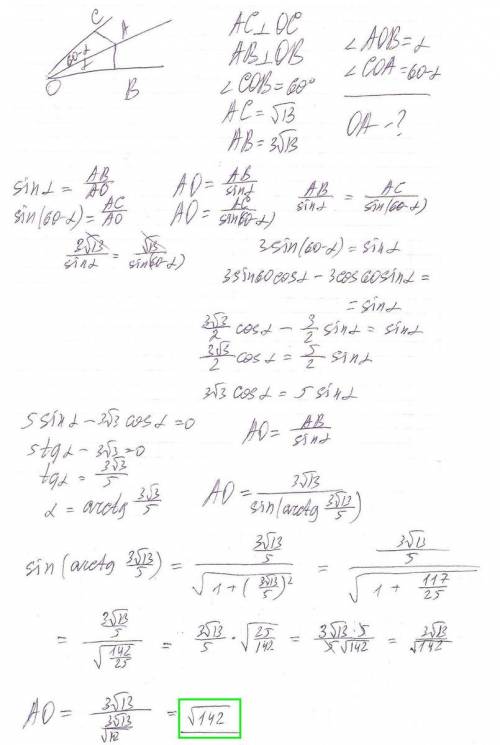 C A
60-α
α
O B
AC⊥OC
AB⊥OB
∠COB=60°
AC=√13
AB=3√13
∠AOB=α
∠COA=60-α
OA-?
sinα = AB/AO
sin(60-α)=AC/AO
AO=AB/sinα
AO=AC/sin(60-α)
AB/sinα = AC/sin(60-α)
3√13/sinα = √13/sin(60-α)
3sin(60-α)=sinα
3sin60cosα-3cos60sinα=
=sinα
3√3/2 cosα - 3/2 sinα = sinα
3√3/2 cosα = 5/2 sinα
3√3 cosα = 5 sinα
5sinα-3√3 cosα=0
5tgα-3√3=0
tgα=3√3/5
α=arctg 3√3/5
AO=AB/sinα
AO=3√13/sin(arctg 3√13/5)
sin(arctg 3√13/5) = (3√13/5)/√(1+(3√13/5)²) = (3√13/5)/√(1+117/25)
= (3√13/5)/√(142/25) = 3√13/5 · √(25/142) = 3√13·5/5√142 = 3√13/√142
AO = 3√13/(3√13/√142) = √142